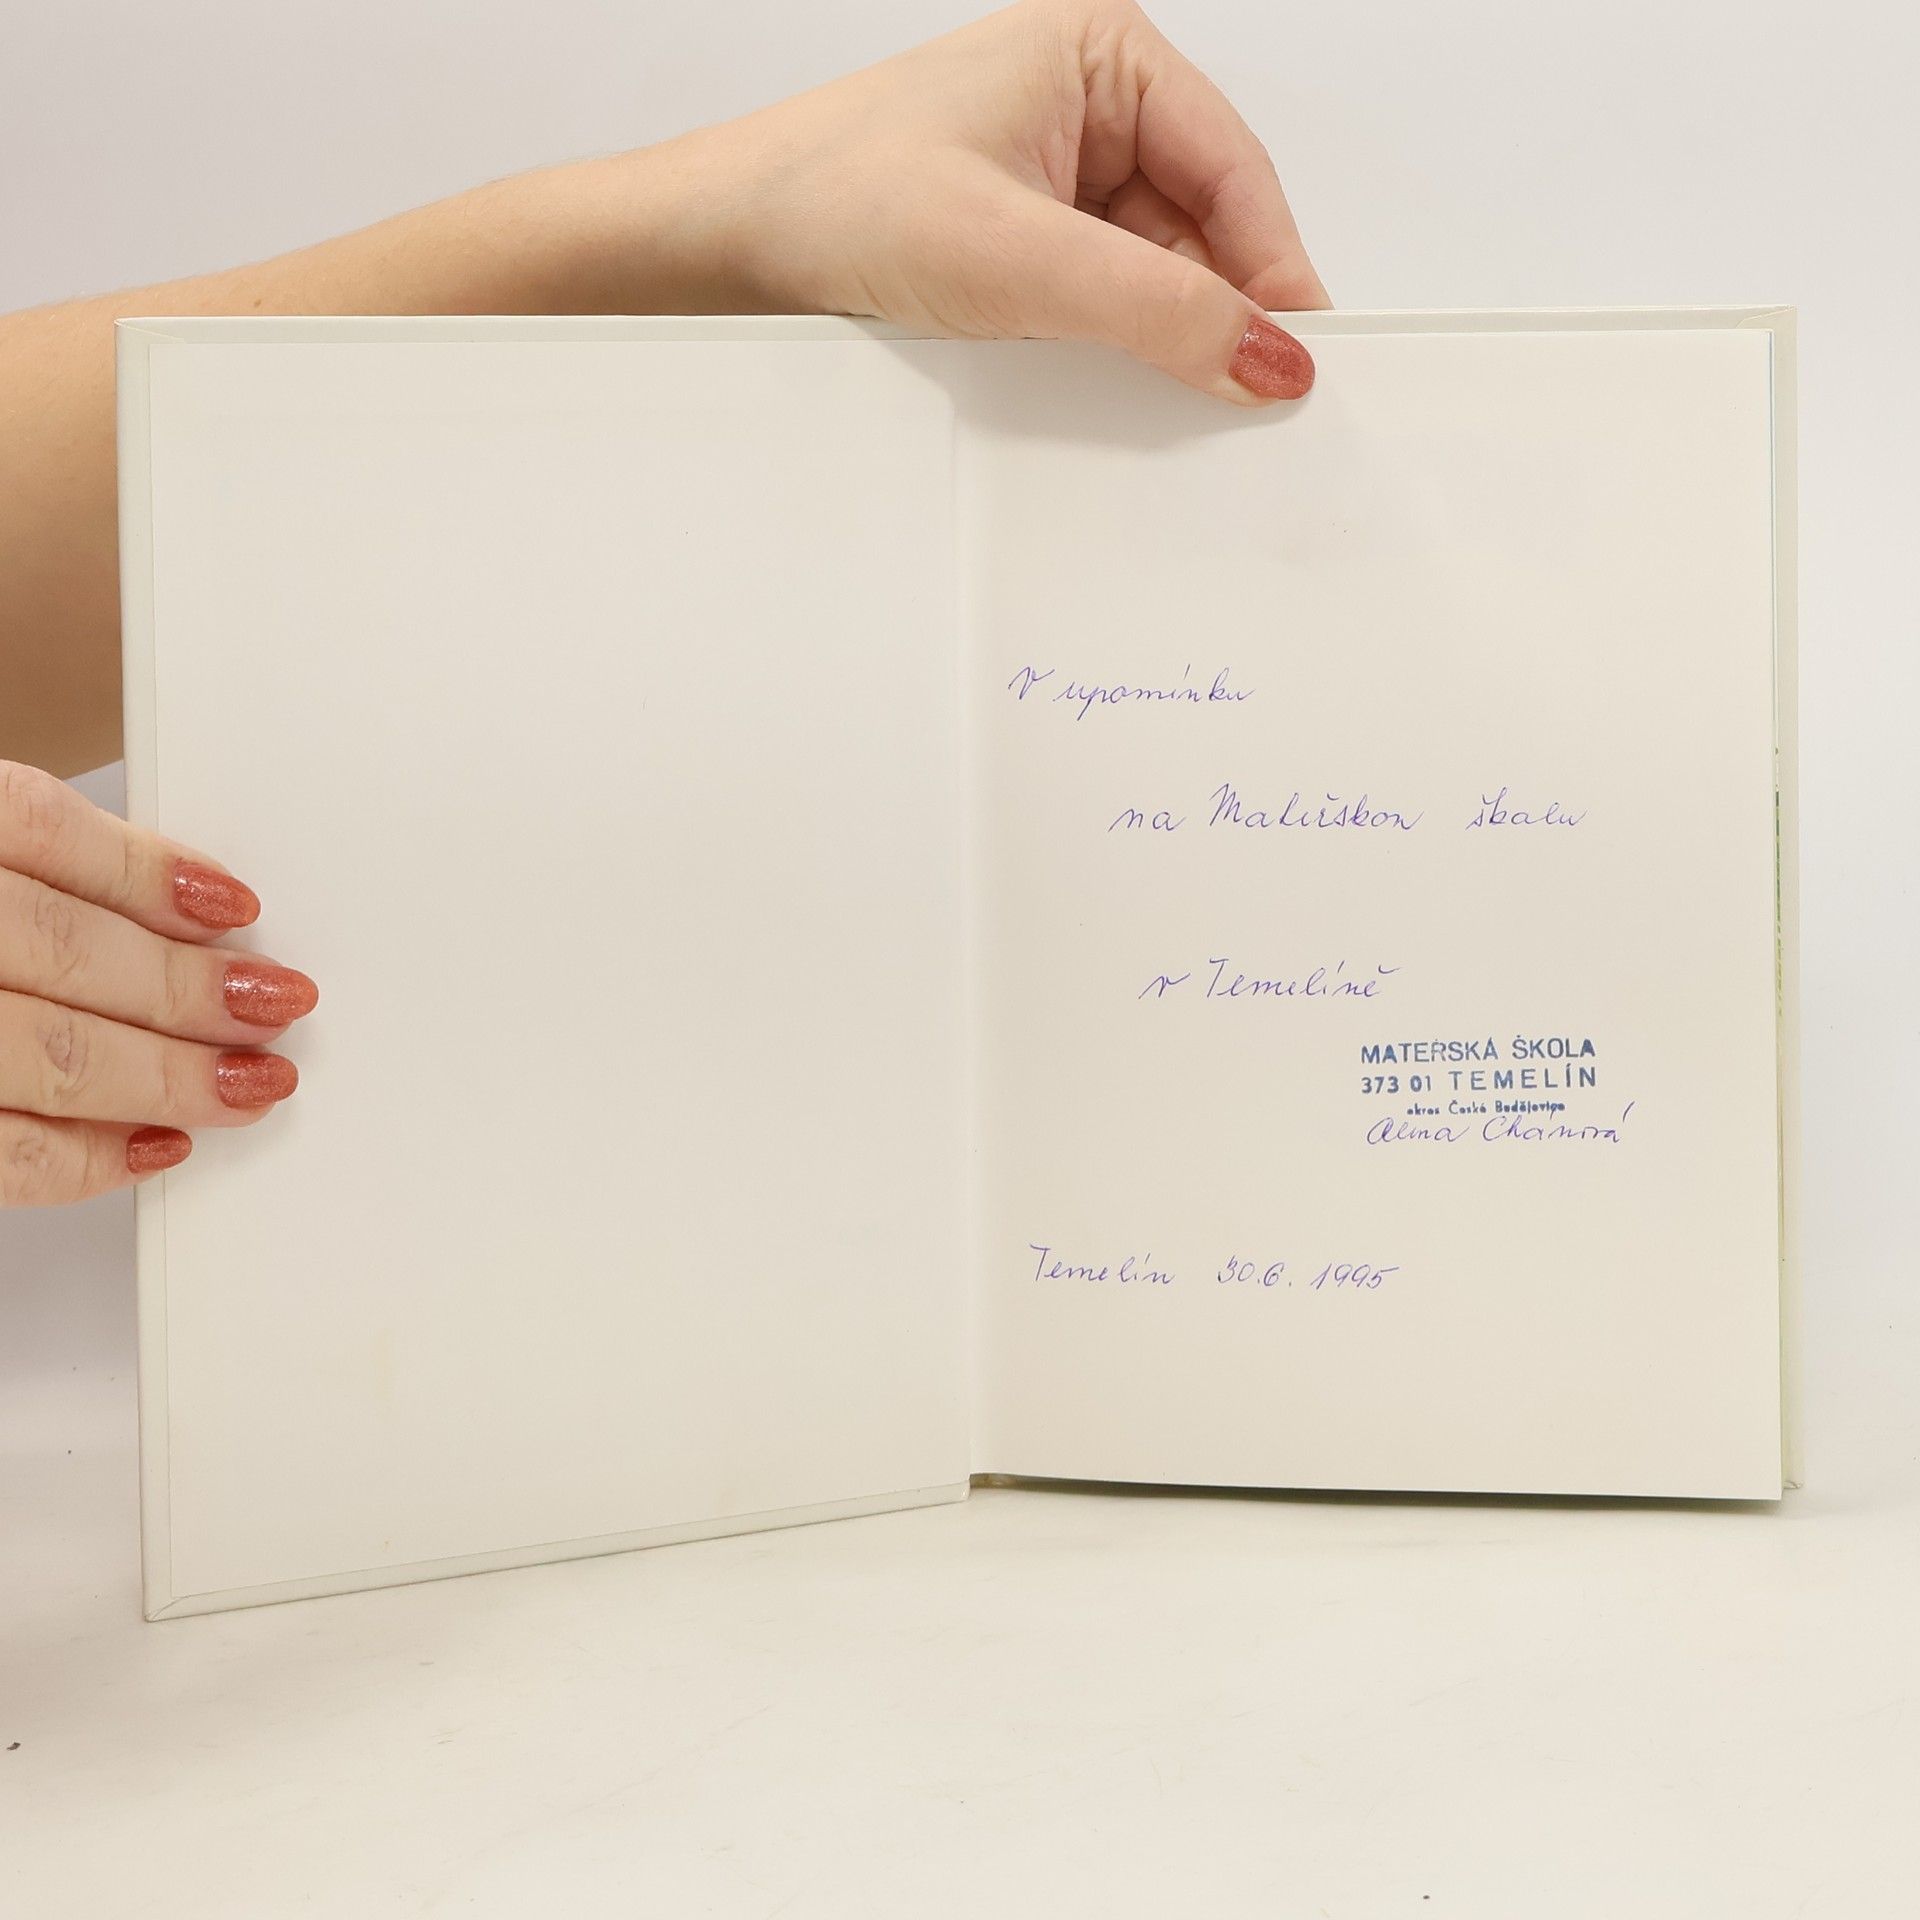 V upomínku
na Mateřskou školu
v Temelíně
MATEŘSKÁ ŠKOLA
373 01 TEMELÍN
okres České Budějovice
Alena Chánová
Temelín 30.6. 1995